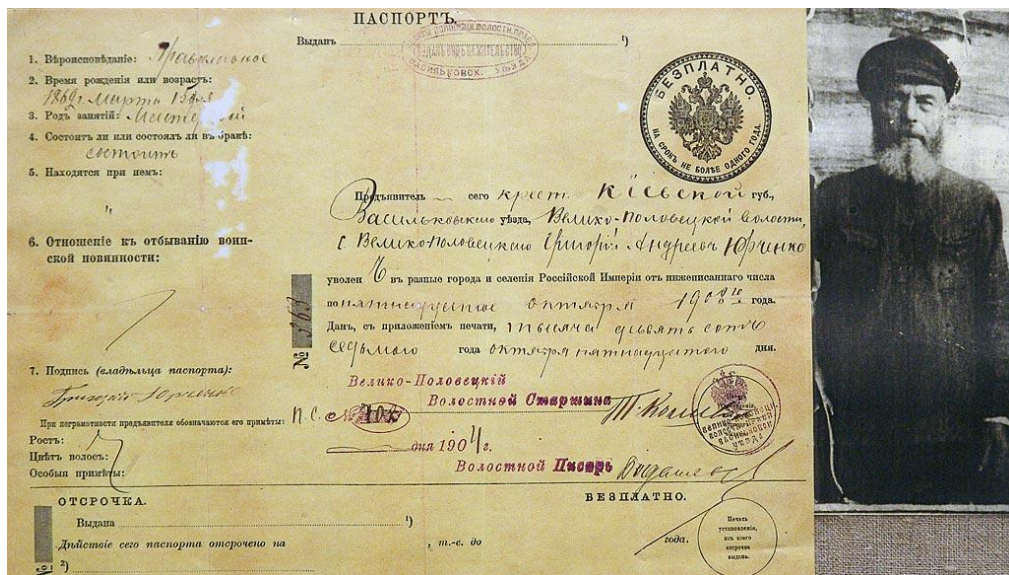 ПАСПОРТЪ.
Выданъ ¹)
БЕЗПЛАТНО.
НА СРОКЪ НЕ БОЛѢЕ ОДНОГО ГОДА.
1. Вѣроисповѣданіе:
2. Время рожденія или возрастъ:
1869 г марта 15 дня
3. Родъ занятій:
4. Состоитъ ли или состоялъ ли въ бракѣ:
состоитъ
5. Находятся при немъ:
"
6. Отношеніе къ отбыванію воин-
ской повинности:
7. Подпись (владѣльца паспорта):
Григорій Юрченко
При неграмотности предъявителя обозначаются его примѣты:
Ростъ:
Цвѣтъ волосъ:
Особыя примѣты:
Предъявитель сего крест. Кіевской губ.,
Васильковскаго уѣзда, Велико-Половецкой волости,
с Велико-Половецкаго Григорій Андреевъ Юрченко
уволен ъ въ разные города и селенія Россійской Имперіи отъ нижеписаннаго числа
по пятнадцатое октября 190 года.
Данъ, съ приложеніемъ печати, тысяча девятьсотъ
седьмого года октября пятнадцатого дня.
№ 363
Велико-Половецкій
Волостной Старшина
П. С. №
дня 1904 г.
Волостной Писарь
ОТСРОЧКА.
БЕЗПЛАТНО.
Выдана ¹)
Дѣйствіе сего паспорта отсрочено на , т.-е. до года.
²)
№
Печать
установленія,
изъ коего
отсрочка
выдана.